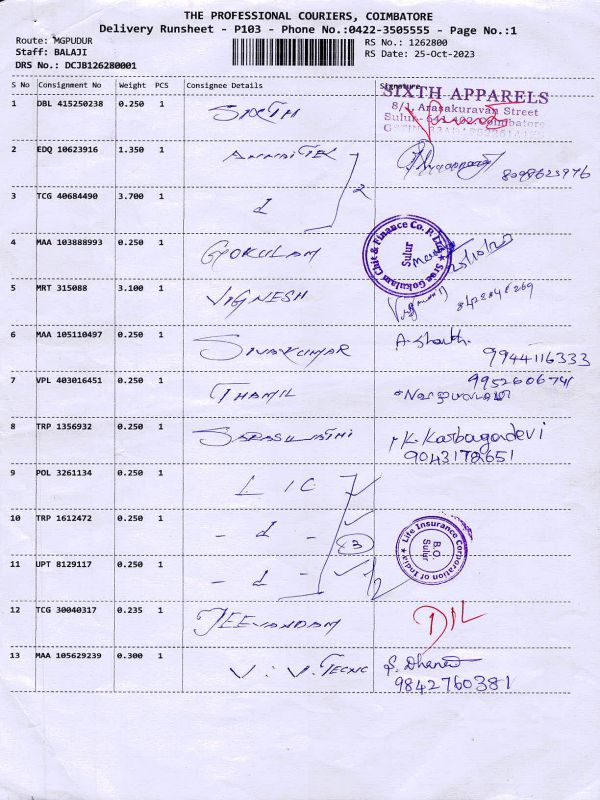 THE PROFESSIONAL COURIERS, COIMBATORE
Delivery Runsheet - P103 - Phone No.:0422-3505555 - Page No.:1
Route: MGPUDUR
RS No.: 1262800
Staff: BALAJI
RS Date: 25-Oct-2023
DRS No.: DCJB126280001
S No Consignment No Weight PCS Consignee Details Signature
SIXTH APPARELS
8/1, Arasakuravan Street
Sulur
1 DBL 415250238 0.250 1 SIXTH
2 EDQ 10623916 1.350 1
3 TCG 40684490 3.700 1
2
4 MAA 103888993 0.250 1 GOKULAM
Sree Gokulam Chit & Finance Co. P. Ltd.
Sulur
25/10/23
5 MRT 315088 3.100 1 VIGNESH
6 MAA 105110497 0.250 1 SIVAKUMAR
9944116333
7 VPL 403016451 0.250 1 THAMIL
8 TRP 1356932 0.250 1 SARASWATHI K. Karbagadevi
9043172651
9 POL 3261134 0.250 1 LIC
10 TRP 1612472 0.250 1 - d -
3
11 UPT 8129117 0.250 1 - d -
Life Insurance Corporation of India
B.O
Sulur
12 TCG 30040317 0.235 1 JEEVANDAM
13 MAA 105629239 0.300 1 V.V.TECNC S. Dhana
9842760381